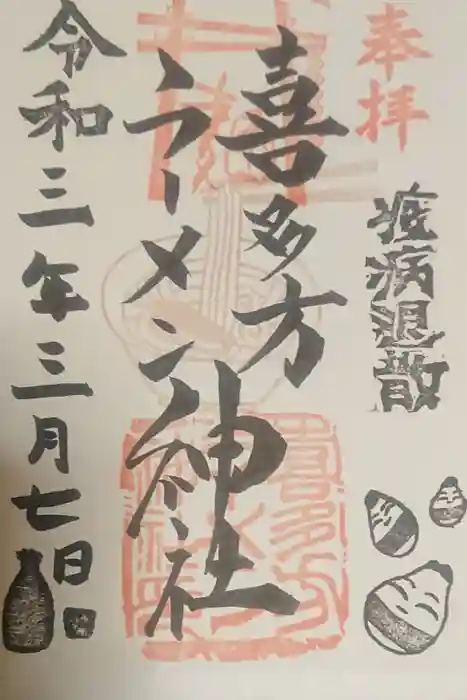 奉拝
疫病退散
喜多方
ラーメン神社
令和三年三月七日
喜多方